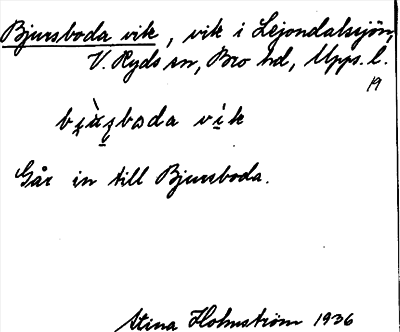 Bjursboda vik, vik i Lejondalssjön,
V. Ryds sn, Bro hd, Upps. l.
19
vík
Går in till Bjursboda.
Stina Holmström 1936